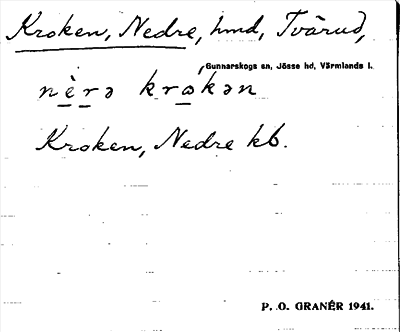 Kroken, Nedre, hmd, Tvärud,
Gunnarskogs sn, Jösse hd, Värmlands l.
nèrə krókən
Kroken, Nedre kb.
P. O. GRANÉR 1941.